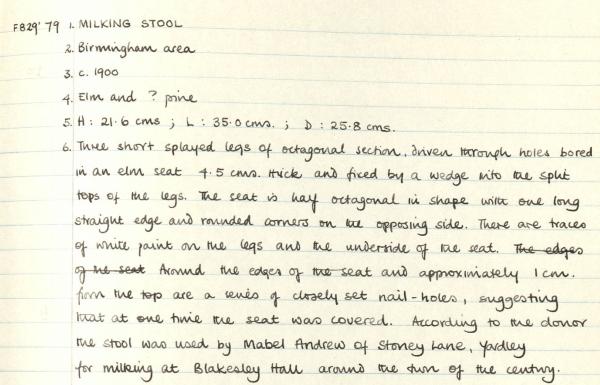 F829'79 1. MILKING STOOL
2. Birmingham area
3. c. 1900
4. Elm and ? pine
5. H : 21.6 cms ; L : 35.0 cms. ; D : 25.8 cms.
6. Three short splayed legs of octagonal section, driven through holes bored
in an elm seat 4.5 cms. thick and fixed by a wedge into the split
tops of the legs. The seat is half octagonal in shape with one long
straight edge and rounded corners on the opposing side. There are traces
of white paint on the legs and the underside of the seat. The edges
of the seat Around the edges of the seat and approximately 1 cm.
from the top are a series of closely set nail-holes, suggesting
that at one time the seat was covered. According to the donor
the stool was used by Mabel Andrew of Stoney Lane, Yardley
for milking at Blakesley Hall around the turn of the century.